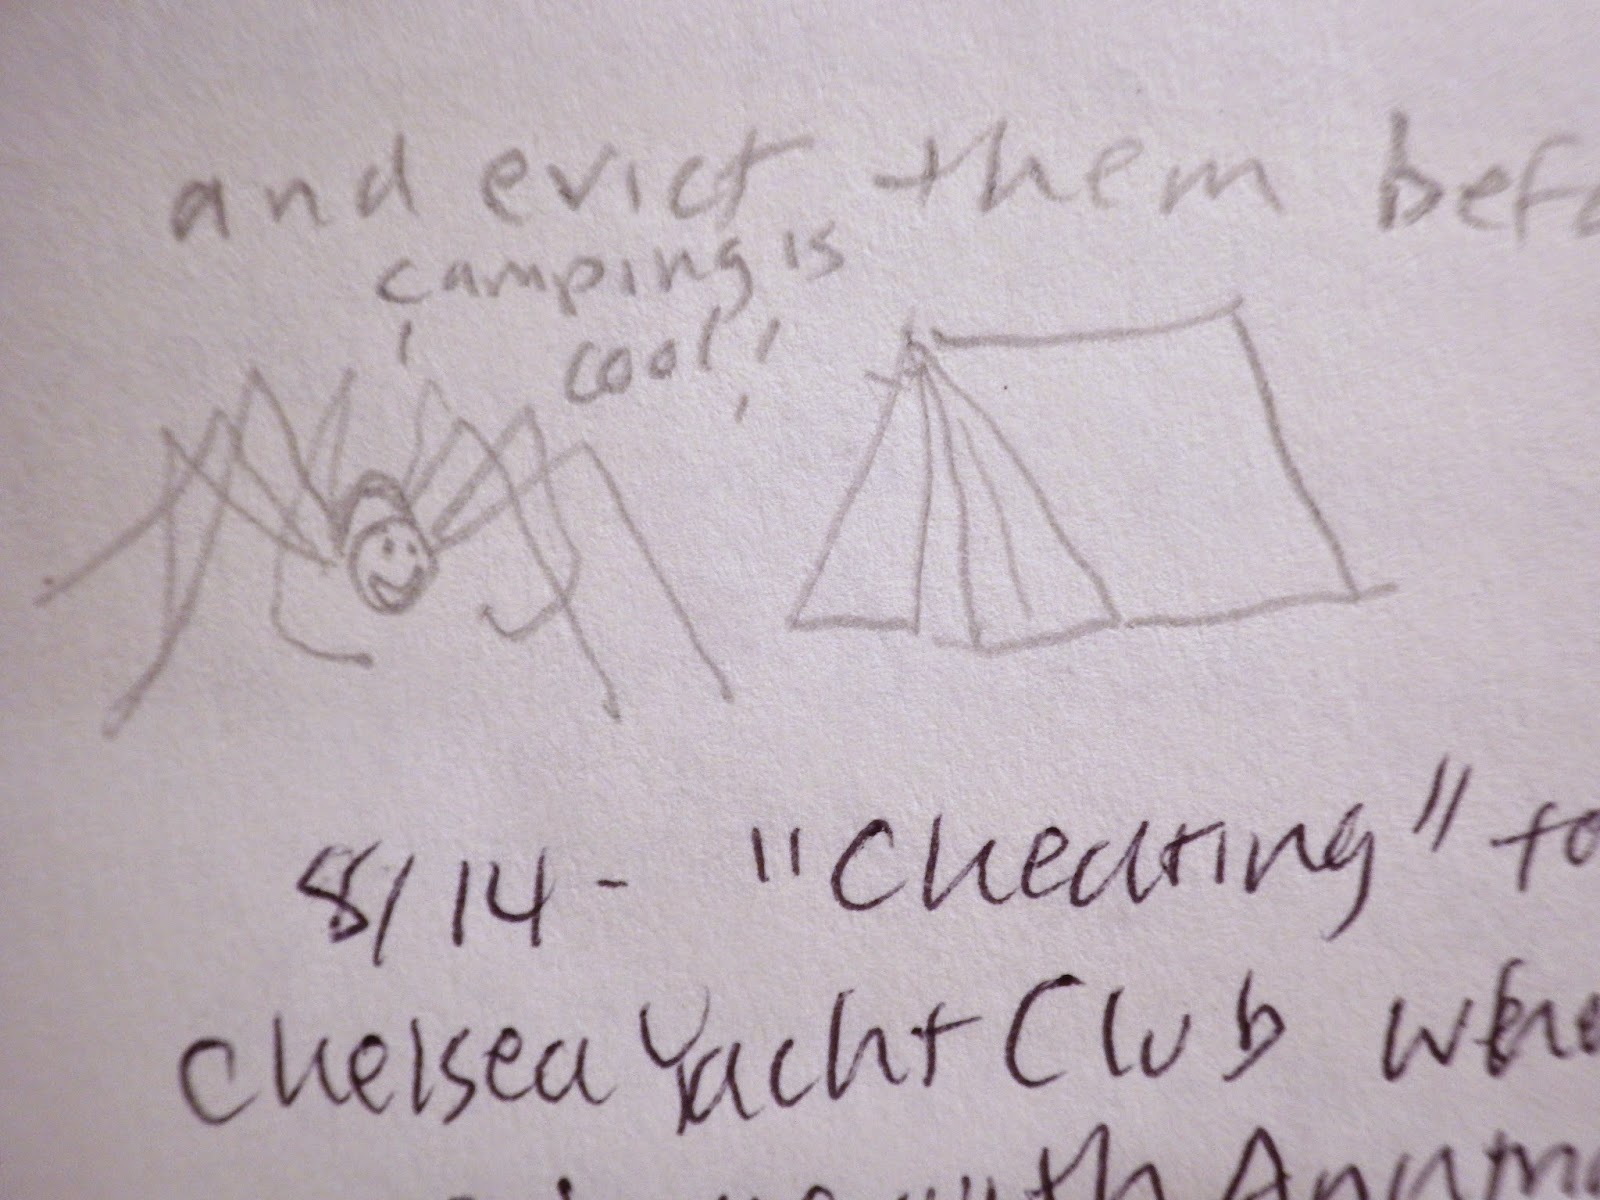 and evict them befo
camping is
cool!
8/14 - "Cheating" to
Chelsea Yacht Club whe
with